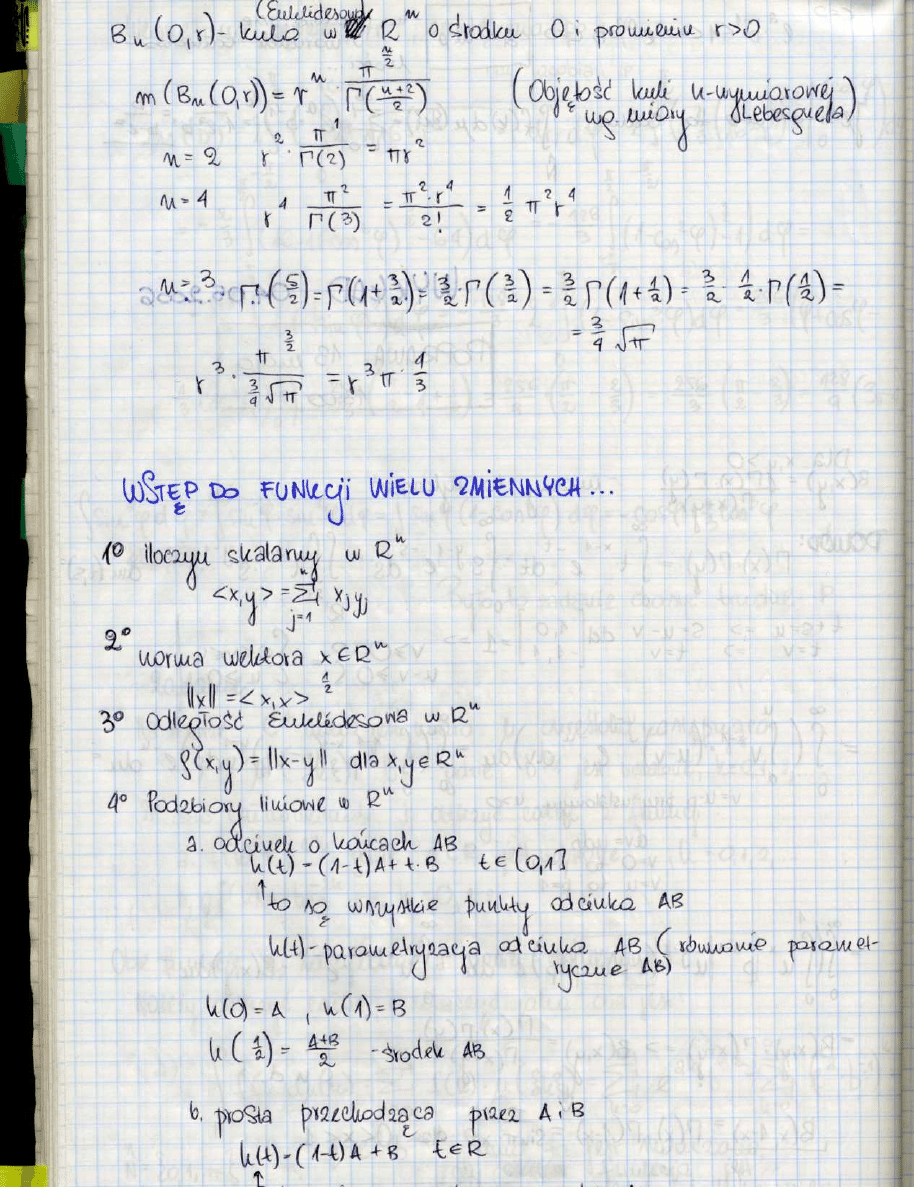 (Euklidesowa)
Bn(0,r) - kula w Rⁿ o środku 0 i promieniu r>0
m(Bn(0,r)) = rⁿ · π^(n/2) / Γ((n+2)/2) (Objętość kuli n-wymiarowej
wg. miary Lebesgue'a)
n = 2 r² · π¹/Γ(2) = πr²
n = 4 r⁴ π²/Γ(3) = π²·r⁴/2! = 1/2 π² r⁴
n = 3 Γ(5/2) = Γ(1+3/2) = 3/2 · Γ(3/2) = 3/2 Γ(1+1/2) = 3/2 · 1/2 · Γ(1/2) =
= 3/4 √π
r³ · π^(3/2) / (3/4 √π) = r³ π · 4/3
WSTĘP DO FUNKCJI WIELU ZMIENNYCH...
1° iloczyn skalarny w Rⁿ
<x,y> = Σ_{j=1}^{n} xj yj
2°
norma wektora x ∈ Rⁿ
||x|| = <x,x>^(1/2)
3° Odległość Euklidesowa w Rⁿ
ρ(x,y) = ||x-y|| dla x,y ∈ Rⁿ
4° Podzbiory liniowe w Rⁿ
a. odcinek o końcach AB
h(t) = (1-t)A + t·B t ∈ [0,1]
↑ to są wszystkie punkty odcinka AB
h(t) - parametryzacja odcinka AB (równanie paramet-
ryczne AB)
h(0) = A , h(1) = B
h(1/2) = (A+B)/2 - środek AB
b. prosta przechodząca przez A i B
h(t) = (1-t)A + B t ∈ R
↑